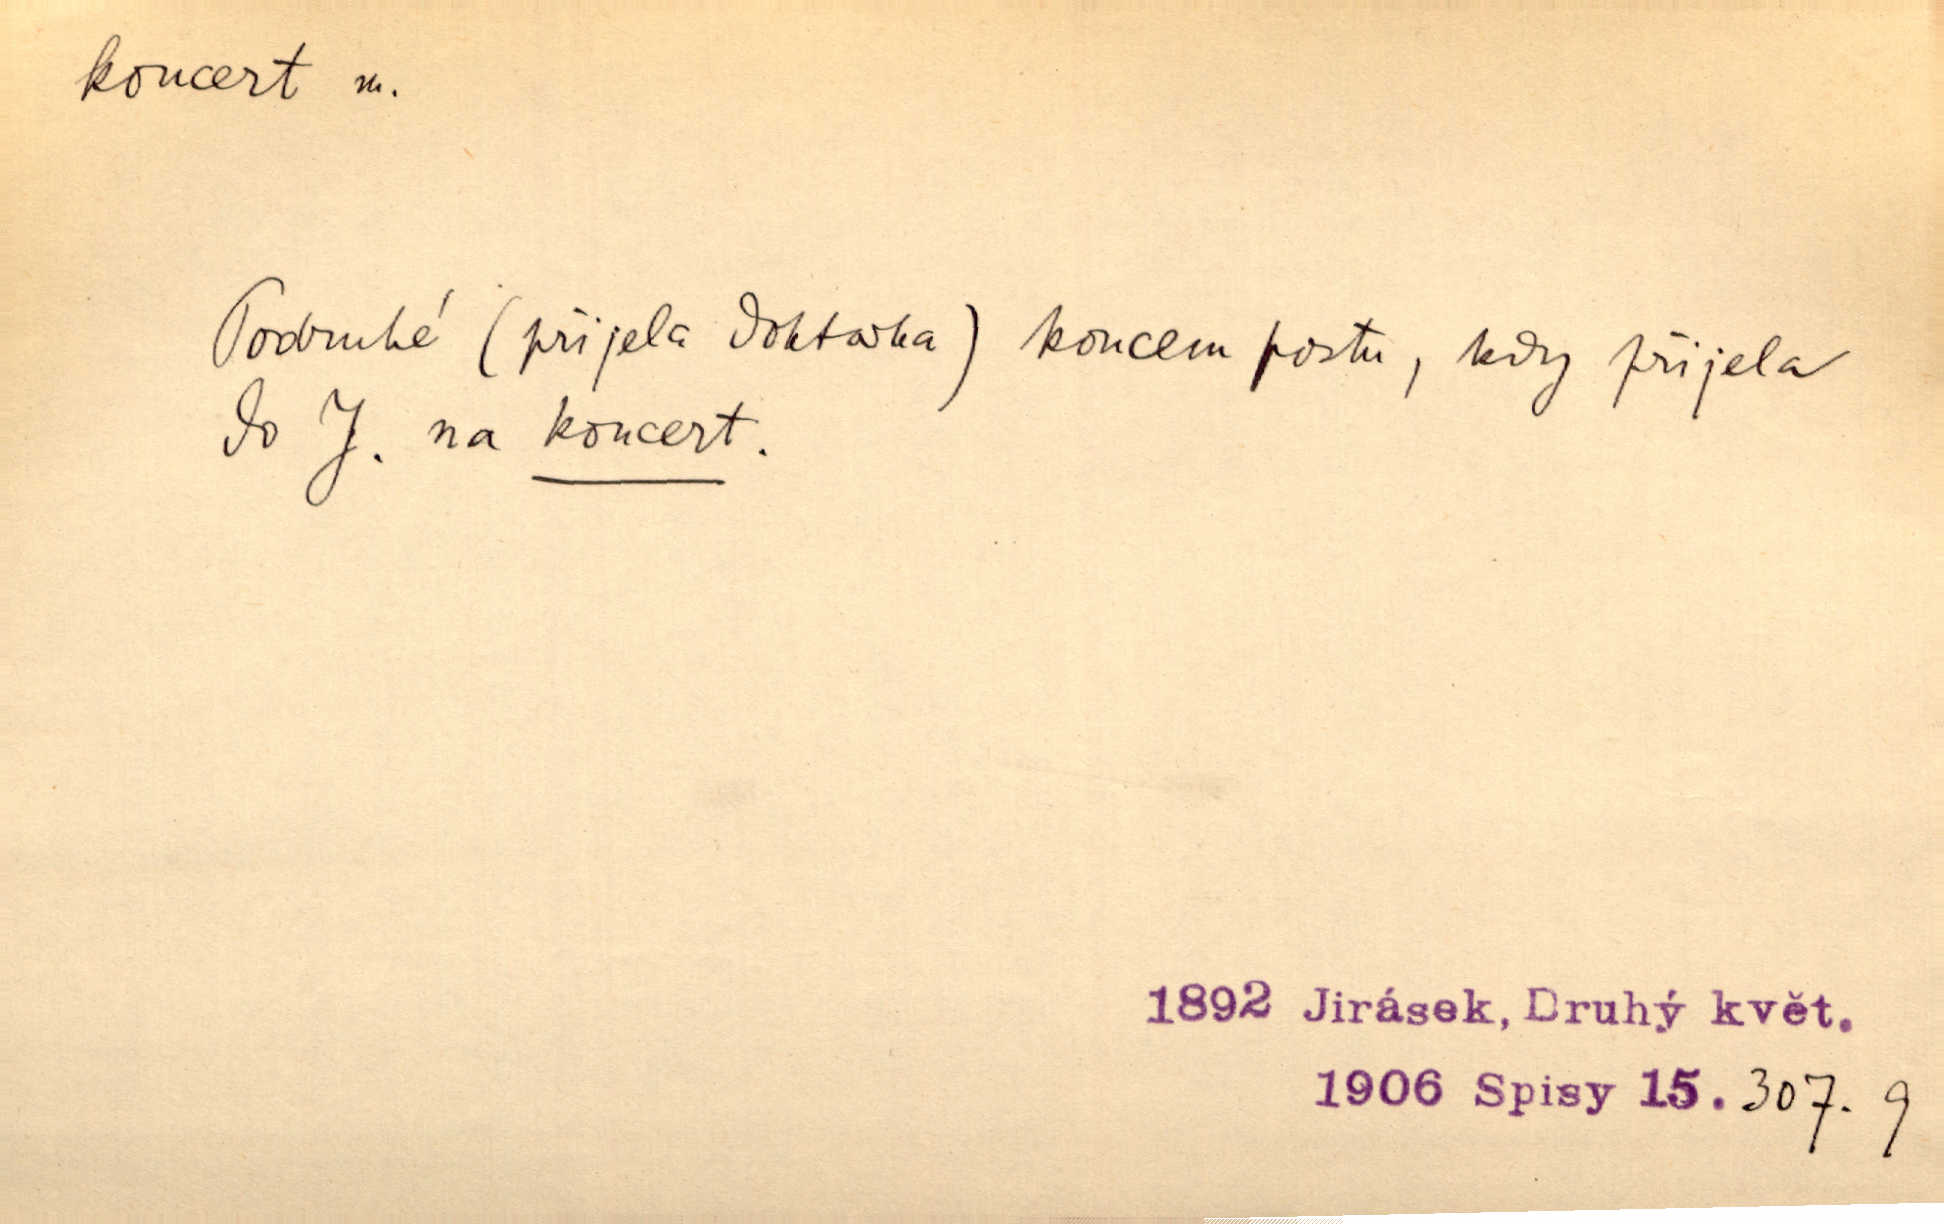 koncert m.
Podruhé (přijela doktorka) koncem postu, kdy přijela
do J. na koncert.
1892 Jirásek, Druhý květ.
1906 Spisy 15. 307. 9